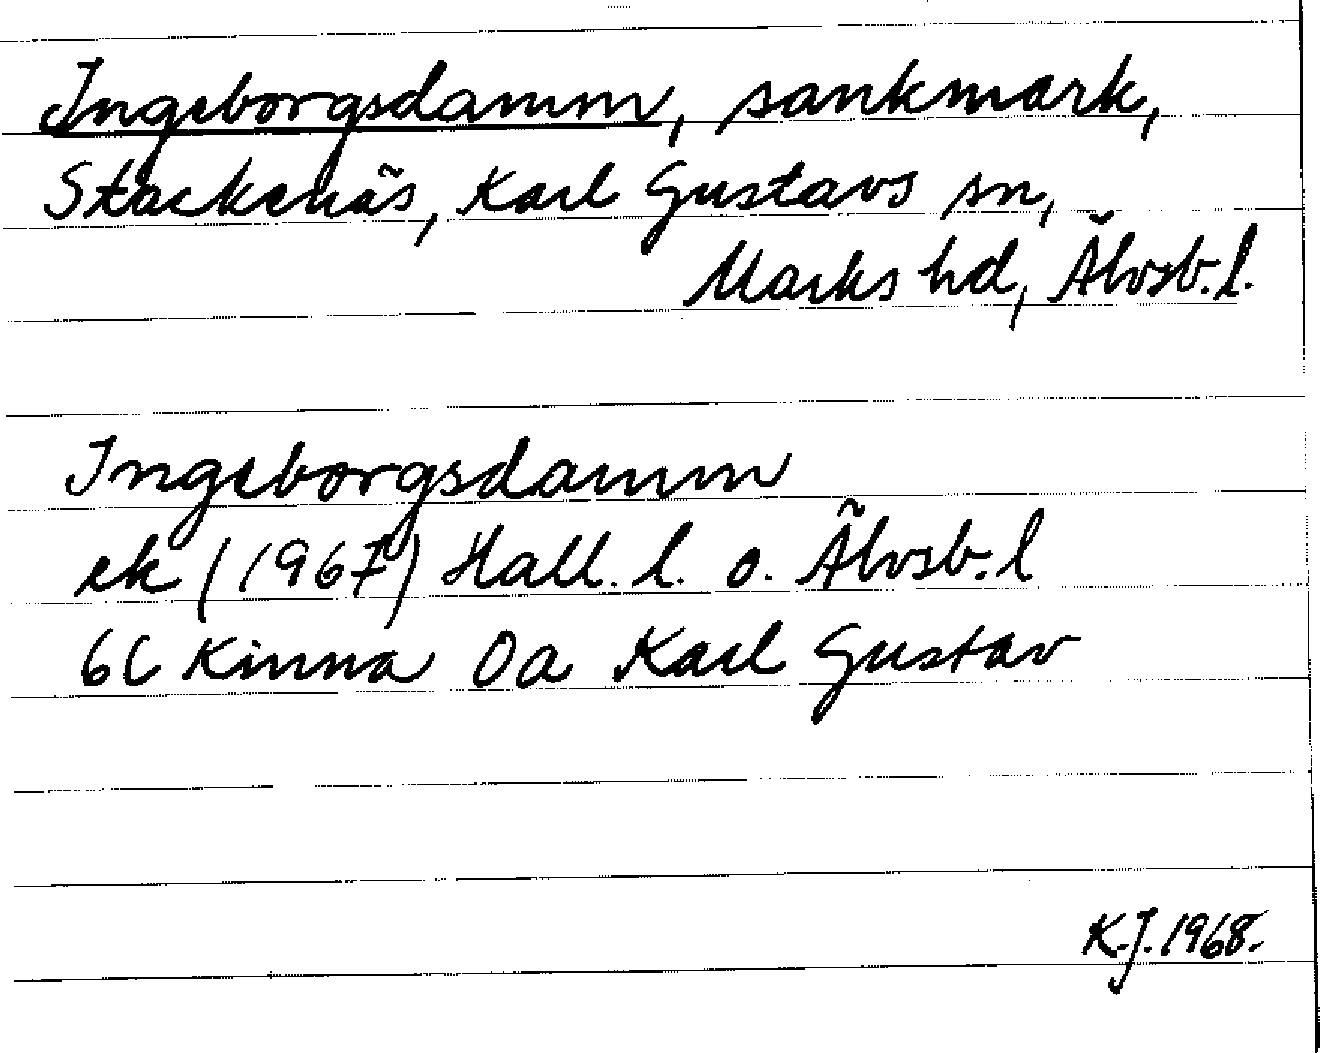 Ingeborgsdamm, sankmark,
Stackenäs, Karl Gustavs sn,
Marks hd, Älvsb. l.
Ingeborgsdamm
ek (1967) Hall. l. o. Älvsb. l
6C Kinna 0a Karl Gustav
K.J. 1968.